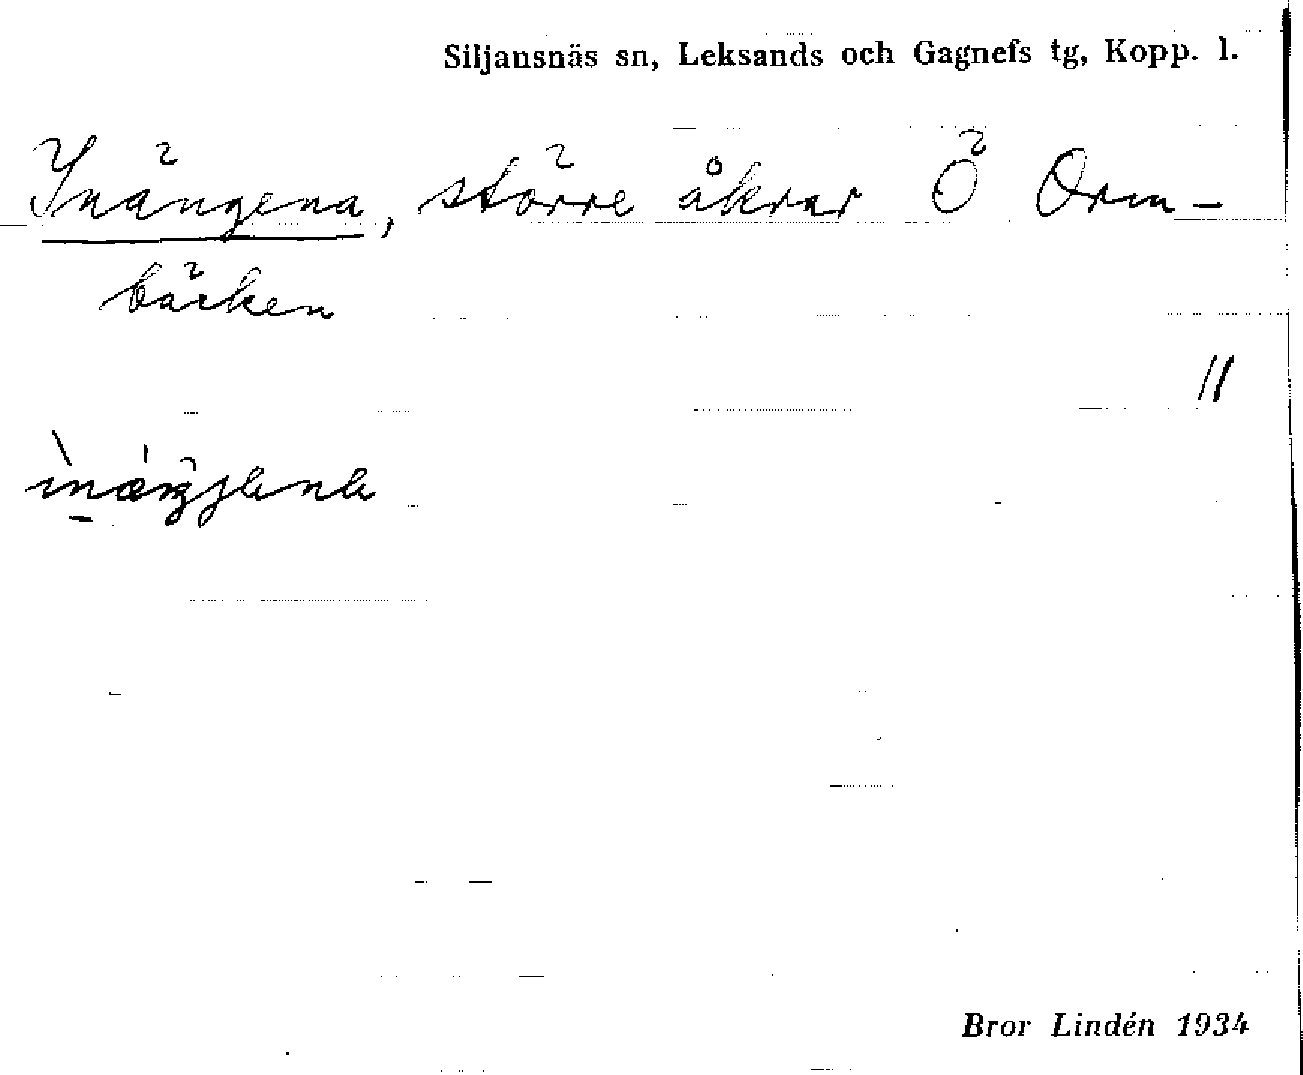 Siljansnäs sn, Leksands och Gagnefs tg, Kopp. l.
Inängena, större åkrar Ö Orm-
bäcken
//
Bror Lindén 1934